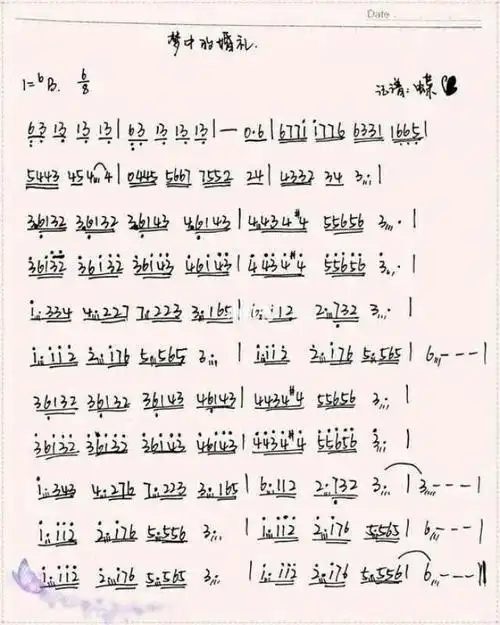 Date
梦中的婚礼.
1=ᵇB. 6/8
记谱:蝶
63 13 13 13 | 63 13 13 13 | — 0.6 | 6771 1776 6331 1665 |
5443 454 4 | 0445 5667 7552 24 | 4332 34 3 |
36132 36132 36143 46143 | 4434#4 55656 3 · |
36132 36132 36143 46143 | 4434#4 55656 3 · |
1334 4227 7223 3165 | 1112 2732 3 · |
1112 2176 5565 3 | 1112 2176 5565 | 6 - - - |
36132 36132 36143 46143 | 4434#4 55656 3 |
36132 36132 36143 46143 | 4434#4 55656 3 |
1343 4276 7223 3165 | 6112 2732 3 | 3 - - - |
1112 2176 5556 3 | 1112 2176 5565 | 6 - - - |
1112 2176 5565 3 | 1112 2176 5556 | 6 - - - ‖